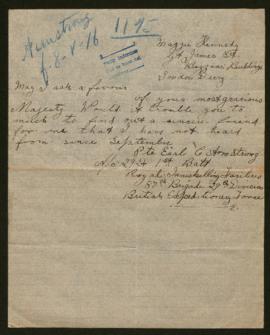 Armstrong
f. 8-V-16
1195
Maggie Kennedy
James St
London Derry
May I ask a favour
of your most gracious
Majesty Would I trouble you to
to find out a sincere friend
for me that I have not heard
from since September
Pte Earl C Armstrong
29 1st Batt
Royal Inniskilling Fusiliers
87th Brigade 29th Division
British Expeditionary Force